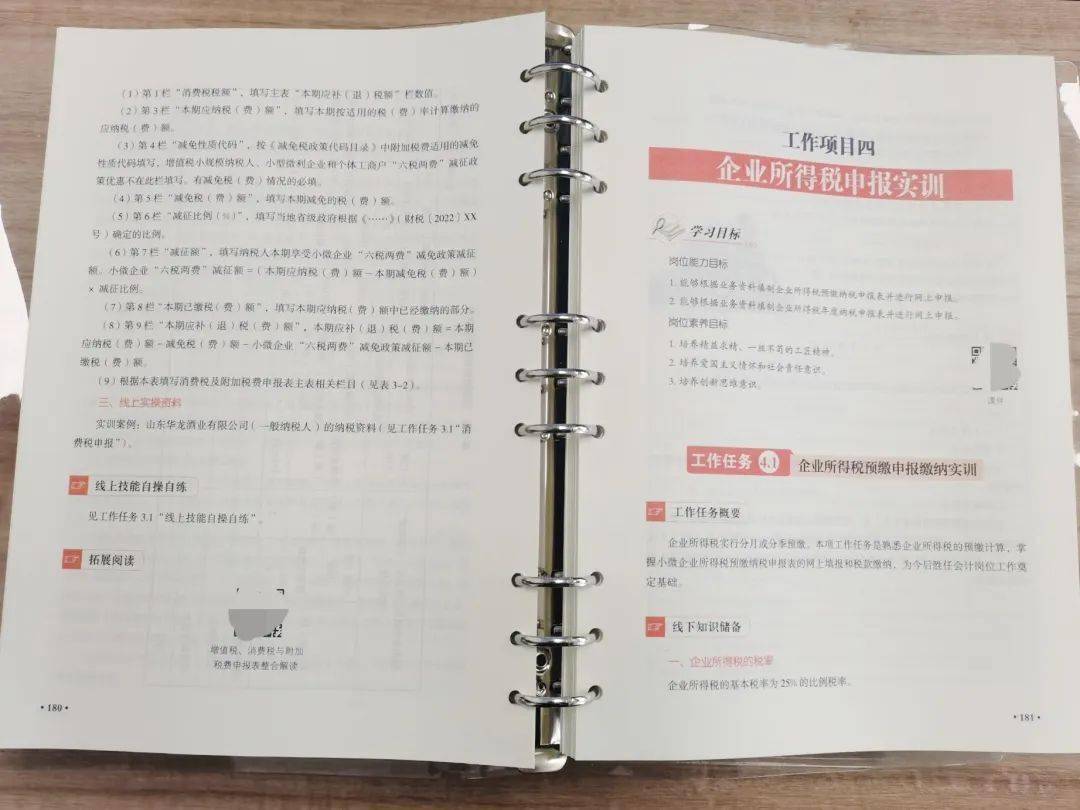 （1）第1栏“消费税税额”，填写主表“本期应补（退）税额”栏数值。
（2）第3栏“本期应纳税（费）额”，填写本期按适用的税（费）率计算缴纳的
应纳税（费）额。
（3）第4栏“减免性质代码”，按《减免税政策代码目录》中附加税费适用的减免
性质代码填写，增值税小规模纳税人、小型微利企业和个体工商户“六税两费”减征政
策优惠不在此栏填写。有减免税（费）情况的必填。
（4）第5栏“减免税（费）额”，填写本期减免的税（费）额。
（5）第6栏“减征比例（%）”，填写当地省级政府根据《……》（财税〔2022〕XX
号）确定的比例。
（6）第7栏“减征额”，填写纳税人本期享受小微企业“六税两费”减免政策减征
额。小微企业“六税两费”减征额＝（本期应纳税（费）额－本期减免税（费）额）
× 减征比例。
（7）第8栏“本期已缴税（费）额”，填写本期应纳税（费）额中已经缴纳的部分。
（8）第9栏“本期应补（退）税（费）额”，本期应补（退）税（费）额＝本期
应纳税（费）额－减免税（费）额－小微企业“六税两费”减免政策减征额－本期已
缴税（费）额。
（9）根据本表填写消费税及附加税费申报表主表相关栏目（见表3-2）。
三、线上实操资料
实训案例：山东华龙酒业有限公司（一般纳税人）的纳税资料（见工作任务3.1“消
费税申报”）。
线上技能自操自练
见工作任务3.1“线上技能自操自练”。
拓展阅读
增值税、消费税与附加
税费申报表整合解读
·180·
工作项目四
企业所得税申报实训
学习目标
岗位能力目标
1. 能够根据业务资料填制企业所得税预缴纳税申报表并进行网上申报。
2. 能够根据业务资料填制企业所得税年度纳税申报表并进行网上申报。
岗位素养目标
1. 培养精益求精、一丝不苟的工匠精神。
2. 培养爱国主义情怀和社会责任意识。
3. 培养创新思维意识。
课件
工作任务 4.1 企业所得税预缴申报缴纳实训
工作任务概要
企业所得税实行分月或分季预缴。本项工作任务是熟悉企业所得税的预缴计算，掌
握小微企业所得税预缴纳税申报表的网上填报和税款缴纳，为今后胜任会计岗位工作奠
定基础。
线下知识储备
一、企业所得税的税率
企业所得税的基本税率为25%的比例税率。
·181·